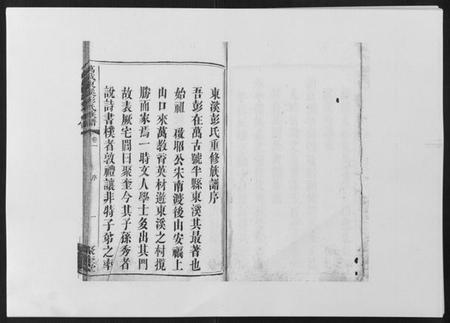 東溪彭氏重修族譜序
吾彭在萬古號半縣東溪其最著也
始祖 公宋南渡後由安福上
山口來萬教育英材遊東溪之村攬
勝而家焉一時文人學士多出其門
故表厥宅閭曰聚奎今其子孫秀者
說詩書樸者敦禮讓非特子弟之率
彭氏族譜 卷一 序 一